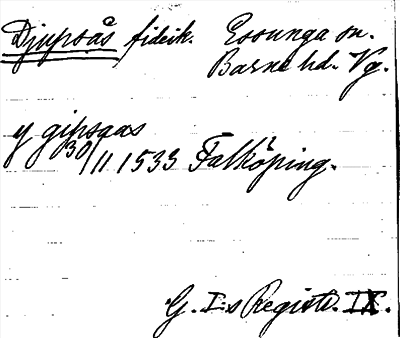 Djupsås fideik. Essunga sn.
Barne hd. Vg.
y gipsaas
30/11 1533 Falköping.
G. I:s Registr. IX.